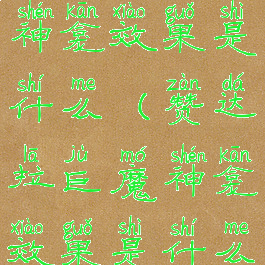 shén kān xiào guǒ shì
神龛效果是
shí me zàn dá
什么(赞达
lā jù mó shén kān
拉巨魔神龛
xiào guǒ shì shí me
效果是什么